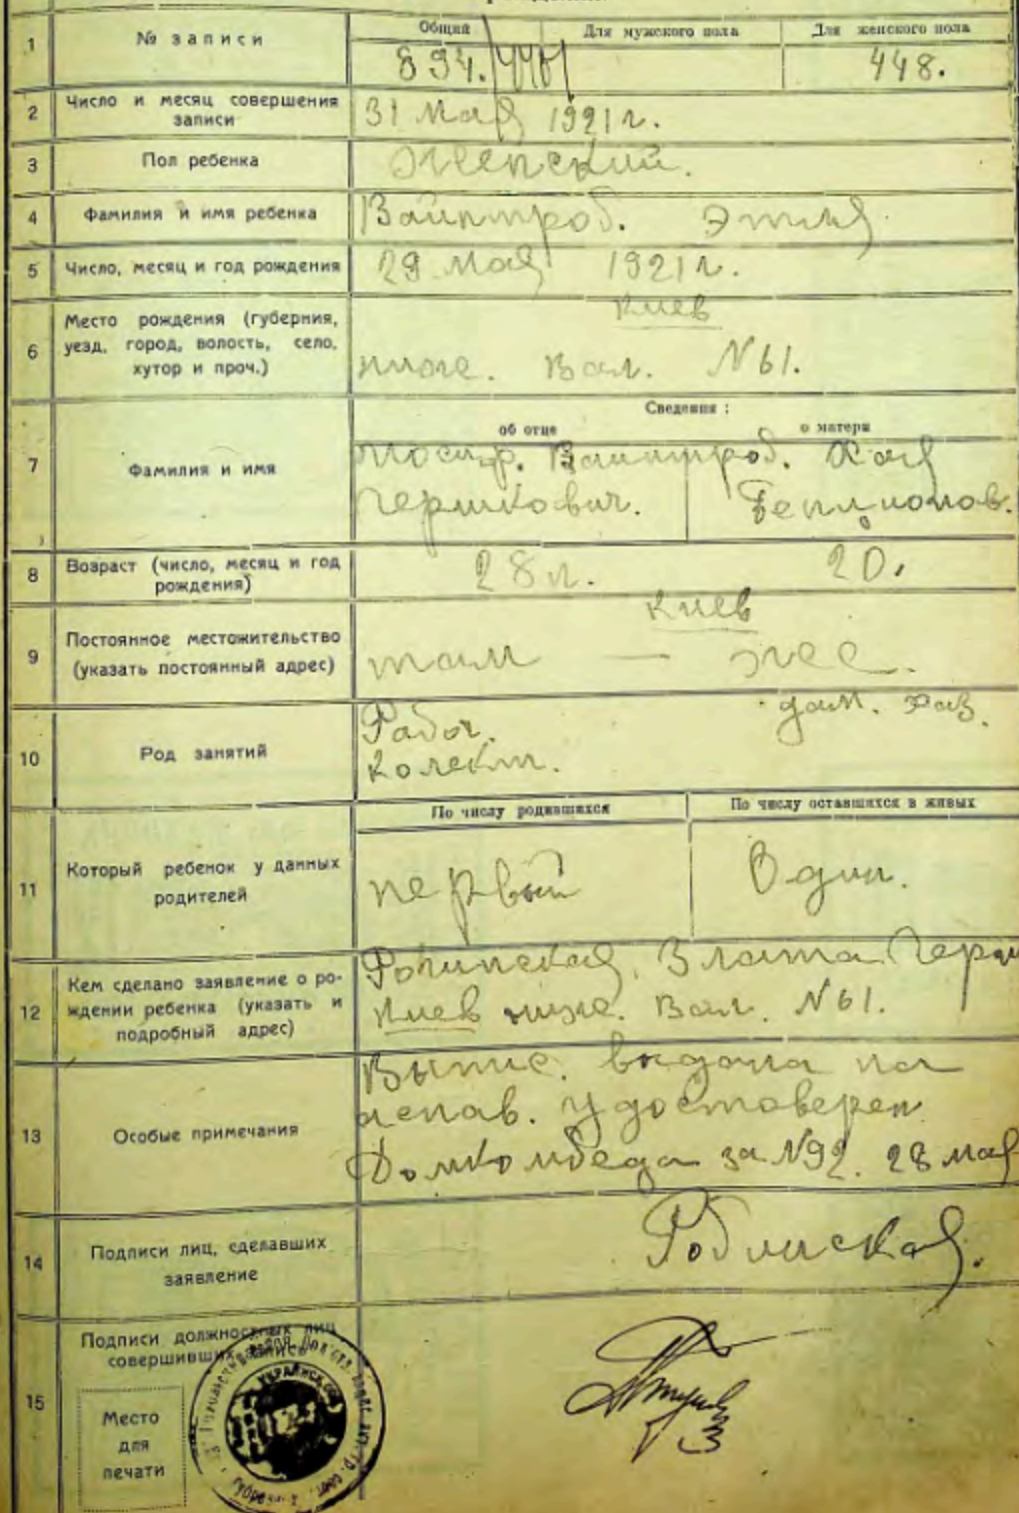 1
№ записи
Общий
Для мужского пола
Для женского пола
894.
448.
2
Число и месяц совершения
записи
31 Мая 1921 г.
3
Пол ребенка
Женский.
4
Фамилия и имя ребенка
Вайнтроб. Этля
5
Число, месяц и год рождения
29 Мая 1921 г.
6
Место рождения (губерния,
уезд, город, волость, село,
хутор и проч.)
Киев
ниже. Вал. №61.
Сведения:
об отце
о матери
7
Фамилия и имя
Иосиф. Вайнтроб. Хая
Гершкович.
8
Возраст (число, месяц и год
рождения)
28 л. 20.
9
Постоянное местожительство
(указать постоянный адрес)
Киев
там — же.
10
Род занятий
Рабоч. дом. хаз.
колект.
11
Который ребенок у данных
родителей
По числу родившихся
По числу оставшихся в живых
первый
Один.
12
Кем сделано заявление о ро-
ждении ребенка (указать и
подробный адрес)
Злата
Киев ниже. Вал. №61.
13
Особые примечания
Выпис. выдана на
основ. удостоверен
Домкомбеда за №92. 28 мая
14
Подписи лиц, сделавших
заявление
15
Подписи должностных лиц
совершивших запись
Место
для
печати